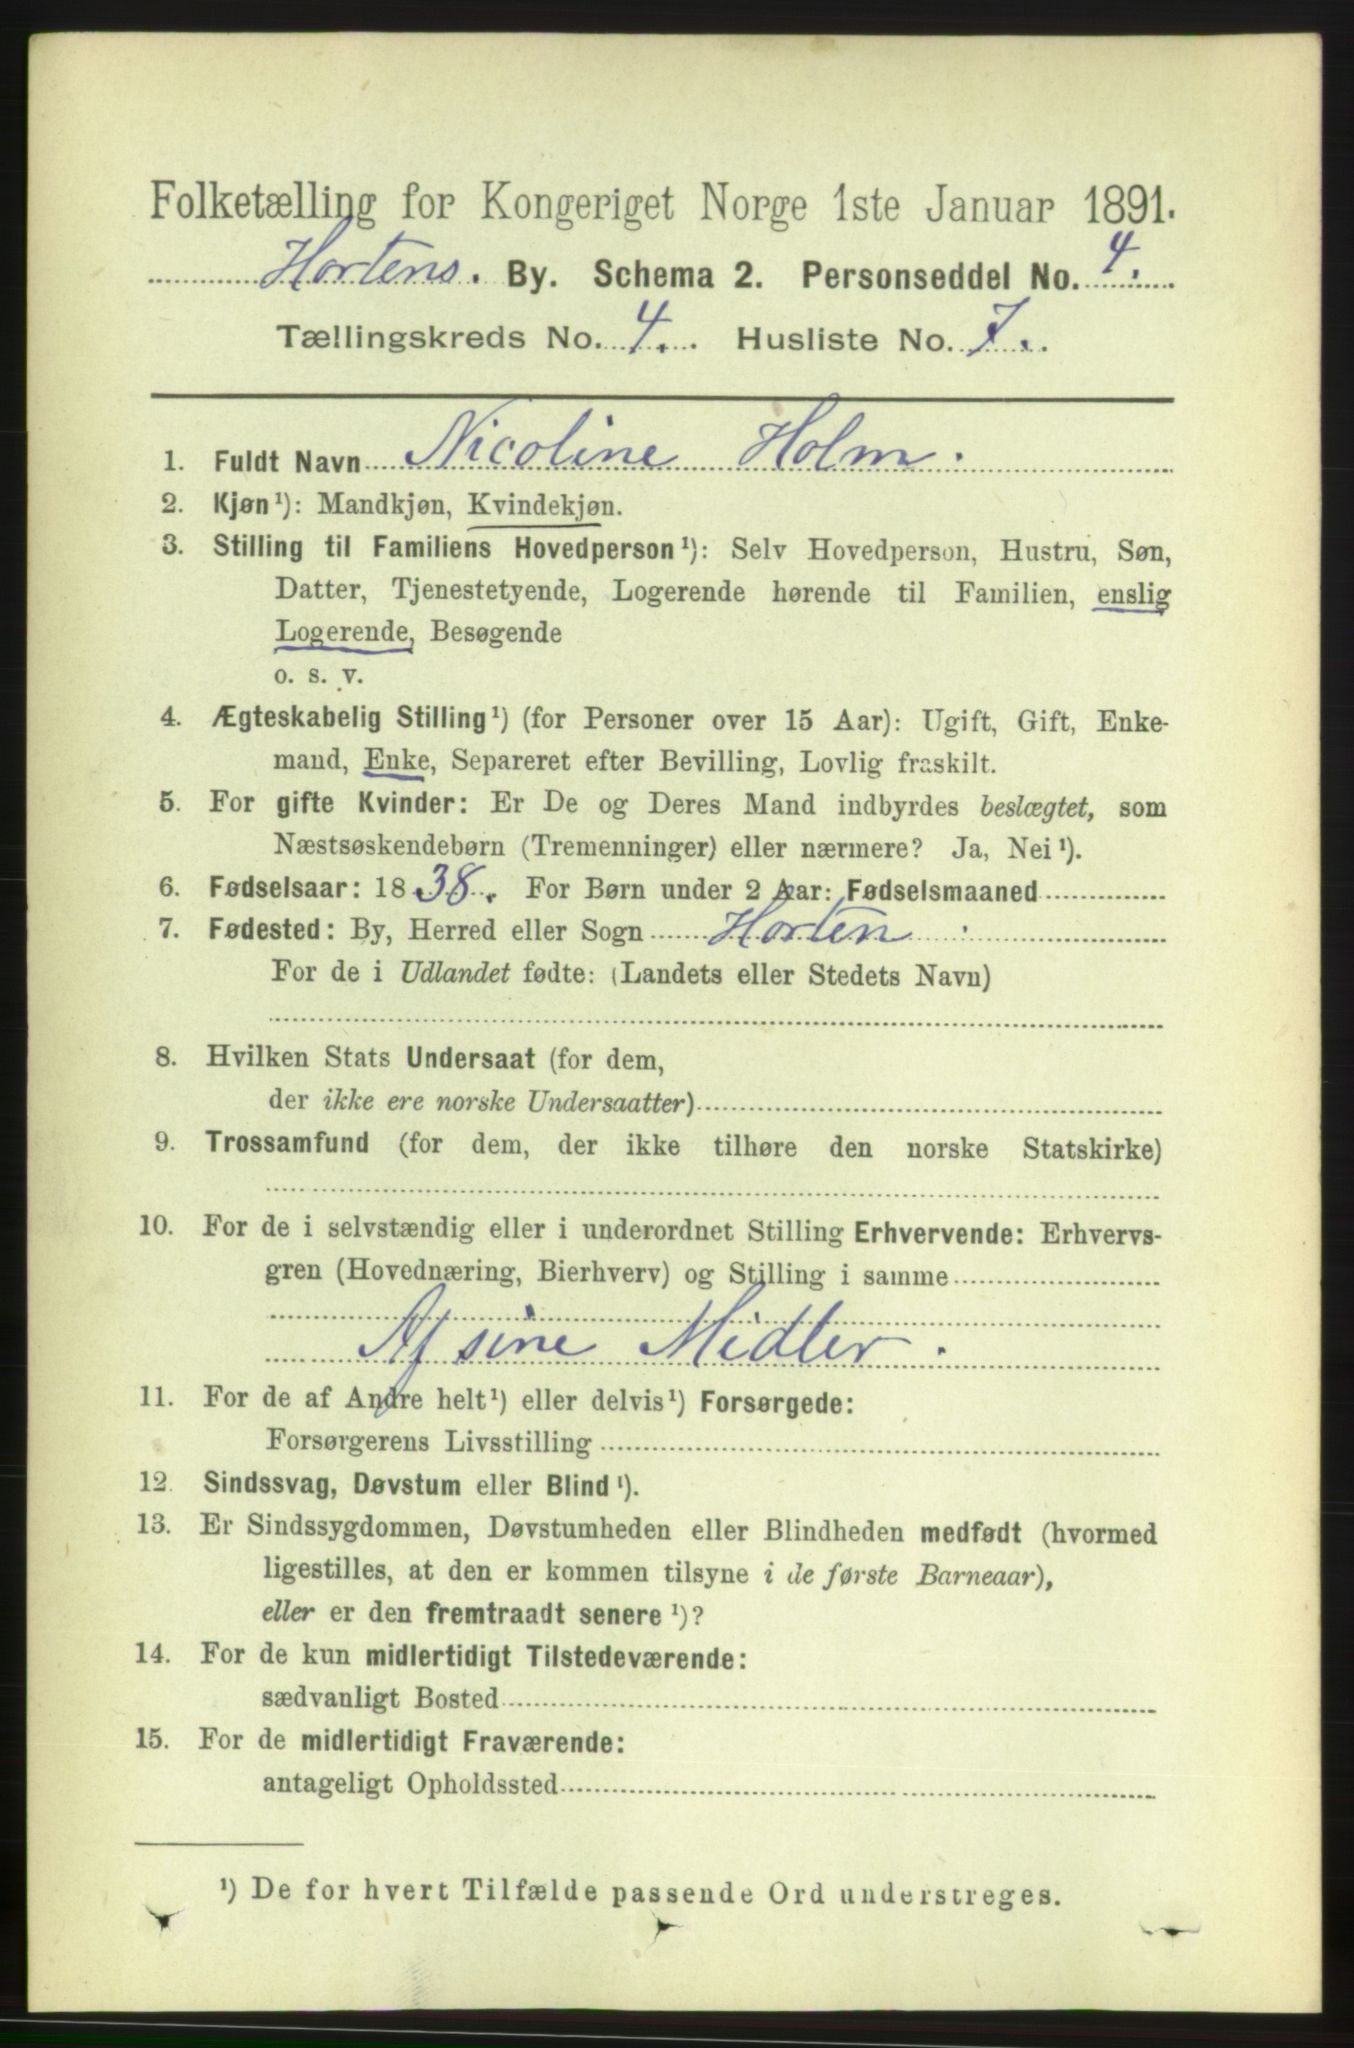 Folketælling for Kongeriget Norge 1ste Januar 1891.
Hortens. By. Schema 2. Personseddel No. 4.
Tællingskreds No. 4. Husliste No. 7.
1. Fuldt Navn Nicoline Holm.
2. Kjøn¹): Mandkjøn, Kvindekjøn.
3. Stilling til Familiens Hovedperson¹): Selv Hovedperson, Hustru, Søn,
Datter, Tjenestetyende, Logerende hørende til Familien, enslig
Logerende, Besøgende
o. s. v.
4. Ægteskabelig Stilling¹) (for Personer over 15 Aar): Ugift, Gift, Enke-
mand, Enke, Separeret efter Bevilling, Lovlig fraskilt.
5. For gifte Kvinder: Er De og Deres Mand indbyrdes beslægtet, som
Næstsøskendebørn (Tremenninger) eller nærmere? Ja, Nei¹).
6. Fødselsaar: 1838. For Børn under 2 Aar: Fødselsmaaned
7. Fødested: By, Herred eller Sogn Horten.
For de i Udlandet fødte: (Landets eller Stedets Navn)
8. Hvilken Stats Undersaat (for dem,
der ikke ere norske Undersaatter)
9. Trossamfund (for dem, der ikke tilhøre den norske Statskirke)
10. For de i selvstændig eller i underordnet Stilling Erhvervende: Erhvervs-
gren (Hovednæring, Bierhverv) og Stilling i samme
Af sine Midler.
11. For de af Andre helt¹) eller delvis¹) Forsørgede:
Forsørgerens Livsstilling
12. Sindssvag, Døvstum eller Blind¹).
13. Er Sindssygdommen, Døvstumheden eller Blindheden medfødt (hvormed
ligestilles, at den er kommen tilsyne i de første Barneaar),
eller er den fremtraadt senere¹)?
14. For de kun midlertidigt Tilstedeværende:
sædvanligt Bosted
15. For de midlertidigt Fraværende:
antageligt Opholdssted
¹) De for hvert Tilfælde passende Ord understreges.